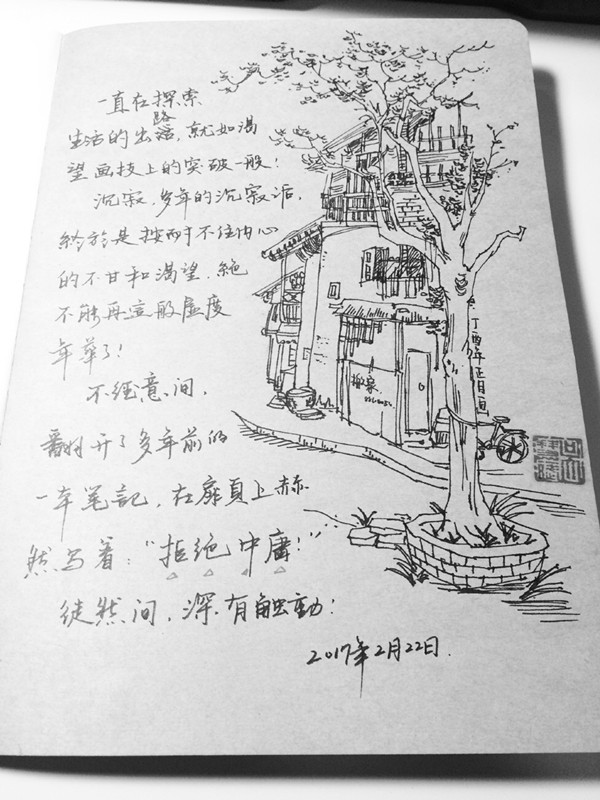 一直在探索
生活的出路，就如渴
望画技上的突破一般！
沉寂，多年的沉寂后，
终於是按耐不住内心
的不甘和渴望，絕
不能再这般虚度
年華了！
不经意间，
翻开了多年前的
一本笔記，在扉頁上赫
然写着："拒绝中庸！"
徒然间，深有触動！
2017年2月22日.
搬家
丁酉年正月